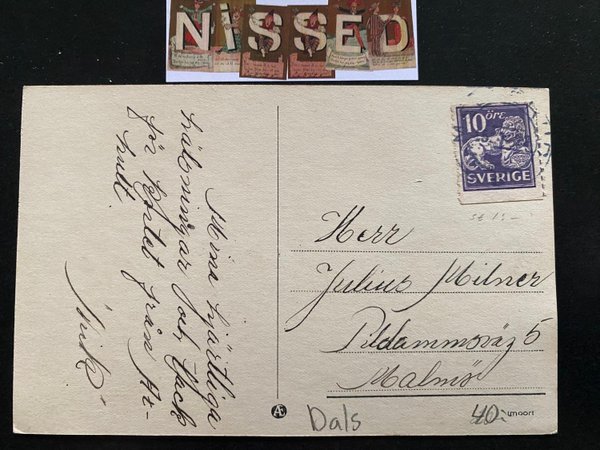 NISSED
Mina hjärtliga
hälsningar och tack
för kortet från Ar-
hult
10 ÖRE
SVERIGE
Herr
Julius Milner
Pildammsväg 5
Malmö
Dals
40:-
Import